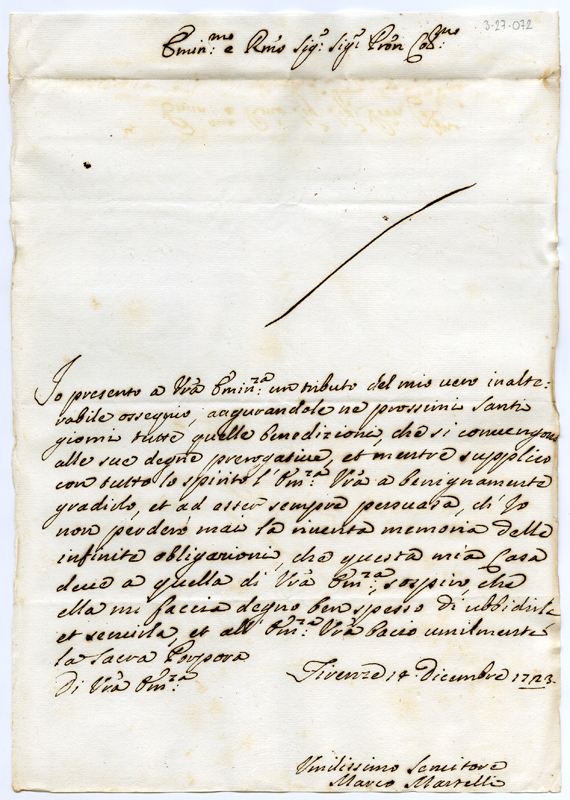 3-27-072
Emin:mo e Rmo Sigr Sigr Pron Colmo
Io presento a Vra Emin:za un tributo del mio vero inalte:
rabile ossequio, augurandole ne prossimi Santi
giorni tutte quelle benedizioni, che si convengono
alle sue degne prerogative, et mentre supplico
con tutto lo spirito l'Em:za Vra a benignamente
gradirlo, et ad esser sempre persuasa, ch'Io
non perderò mai la riverita memoria delle
infinite obligazioni, che questa mia Casa
deve a quella di Vra Em:za, sospiro, che
ella mi faccia degno ben spesso di ubbidirla
et servirla, et all'Em:za Vra bacio umilmente
la Sacra Porpora
Di Vra Em:za
Firenze 14 dicembre 1723.
Umilissimo Servitore
Marco Martelli